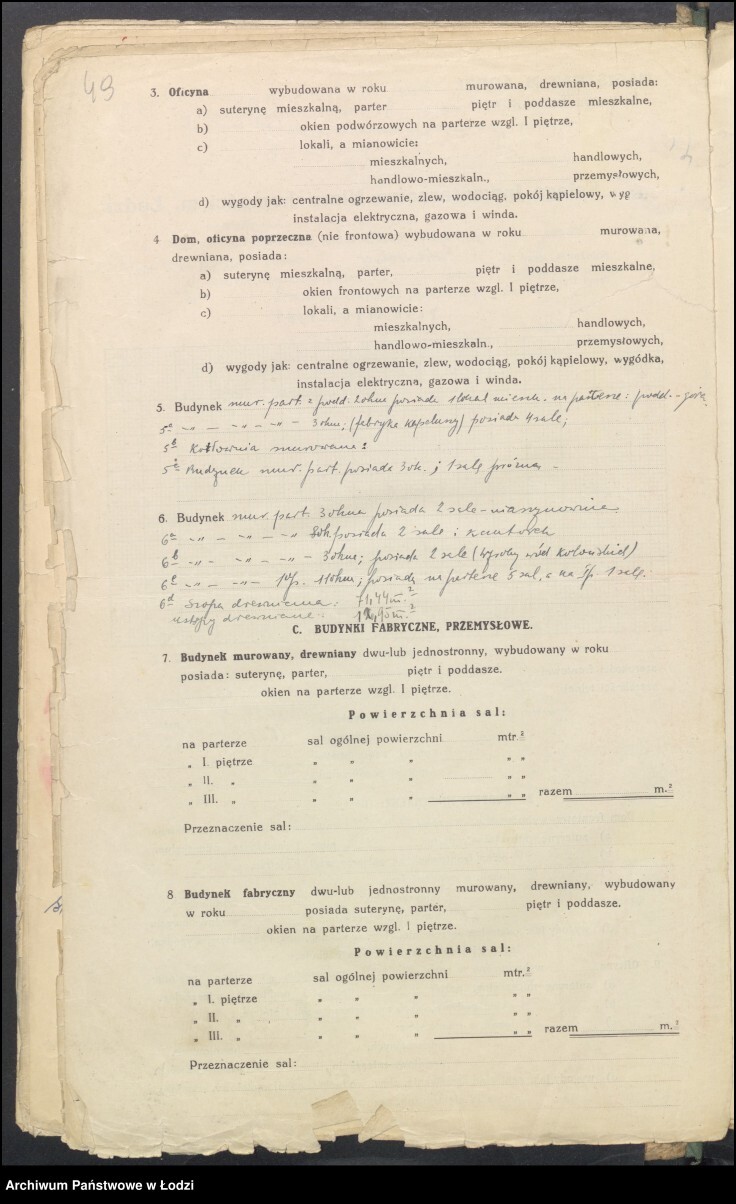 49
3. Oficyna wybudowana w roku murowana, drewniana, posiada:
a) suterynę mieszkalną, parter piętr i poddasze mieszkalne,
b) okien podwórzowych na parterze wzgl. I piętrze,
c) lokali, a mianowicie:
mieszkalnych, handlowych,
handlowo-mieszkaln., przemysłowych,
d) wygody jak: centralne ogrzewanie, zlew, wodociąg, pokój kąpielowy, wyg
instalacja elektryczna, gazowa i winda.
4 Dom, oficyna poprzeczna (nie frontowa) wybudowana w roku murowana,
drewniana, posiada:
a) suterynę mieszkalną, parter, piętr i poddasze mieszkalne,
b) okien frontowych na parterze wzgl. I piętrze,
c) lokali, a mianowicie:
mieszkalnych, handlowych,
handlowo-mieszkaln., przemysłowych,
d) wygody jak: centralne ogrzewanie, zlew, wodociąg, pokój kąpielowy, wygódka,
instalacja elektryczna, gazowa i winda.
5. Budynek mur. part. z podd. 2 okna posiada 1 lokal mieszk. na parterze i podd. - góra
5a -"- -"- -"- 3 okna; (fabryka kapeluszy) posiada 4 sale;
5b Kotłownia murowana:
5c Budynek mur. part. posiada 3 ok. i 1 salę próżną -
6. Budynek mur. part. 3 okna posiada 2 sale - maszynownia
6a -"- -"- -"- 8 ok. posiada 2 sale i kantorek
6b -"- -"- -"- 3 okna; posiada 2 sale (wyroby wód kolońskich)
6c -"- -"- 1 p. 11 okna; posiada na parterze 5 sal, a na I p. 1 salę.
6d Szopa drewniana: 71,44 m.2
ustępy drewniane: ,95 m.2
C. BUDYNKI FABRYCZNE, PRZEMYSŁOWE.
7. Budynek murowany, drewniany dwu-lub jednostronny, wybudowany w roku
posiada: suterynę, parter, piętr i poddasze.
okien na parterze wzgl. I piętrze.
Powierzchnia sal:
na parterze sal ogólnej powierzchni mtr.²
„ I. piętrze „ „ „ „ „
„ II. „ „ „ „ „ „
„ III. „ „ „ „ „ „ razem m.²
Przeznaczenie sal:
8 Budynek fabryczny dwu-lub jednostronny murowany, drewniany, wybudowany
w roku posiada suterynę, parter, piętr i poddasze.
okien na parterze wzgl. I piętrze.
Powierzchnia sal:
na parterze sal ogólnej powierzchni mtr.²
„ I. piętrze „ „ „ „ „
„ II. „ „ „ „ „ „
„ III. „ „ „ „ „ „ razem m.²
Przeznaczenie sal:
Archiwum Państwowe w Łodzi